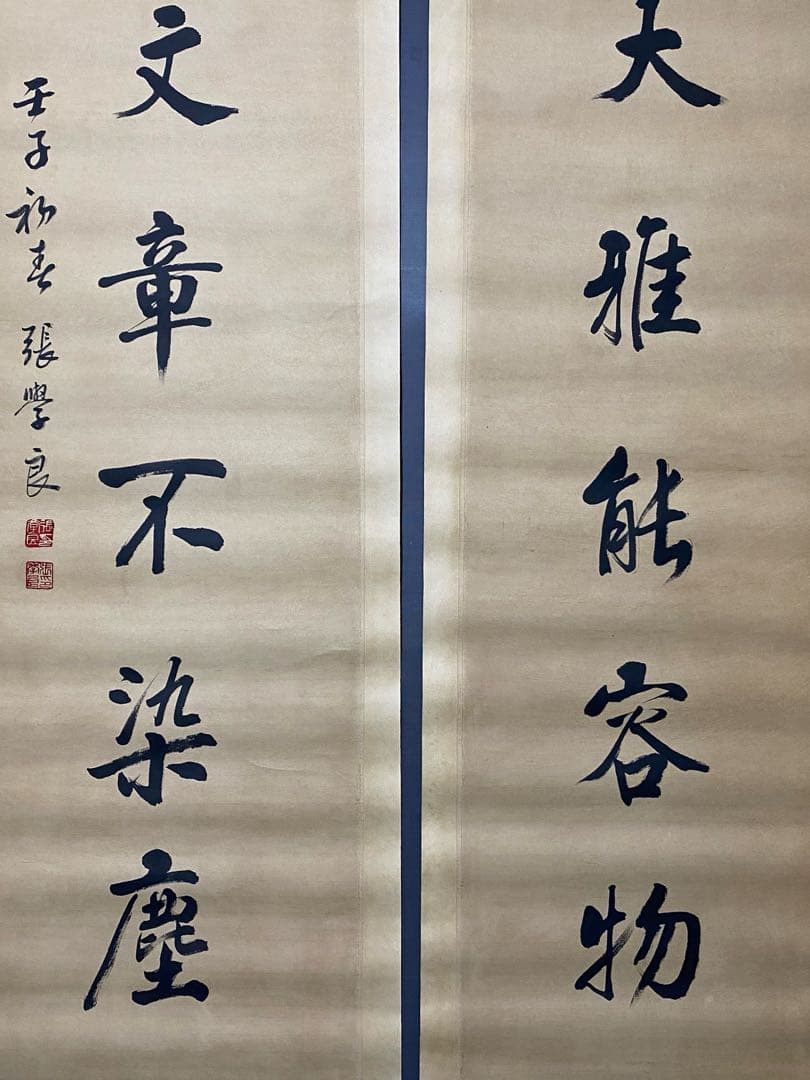 大雅能容物
文章不染塵
壬子初春 張學良